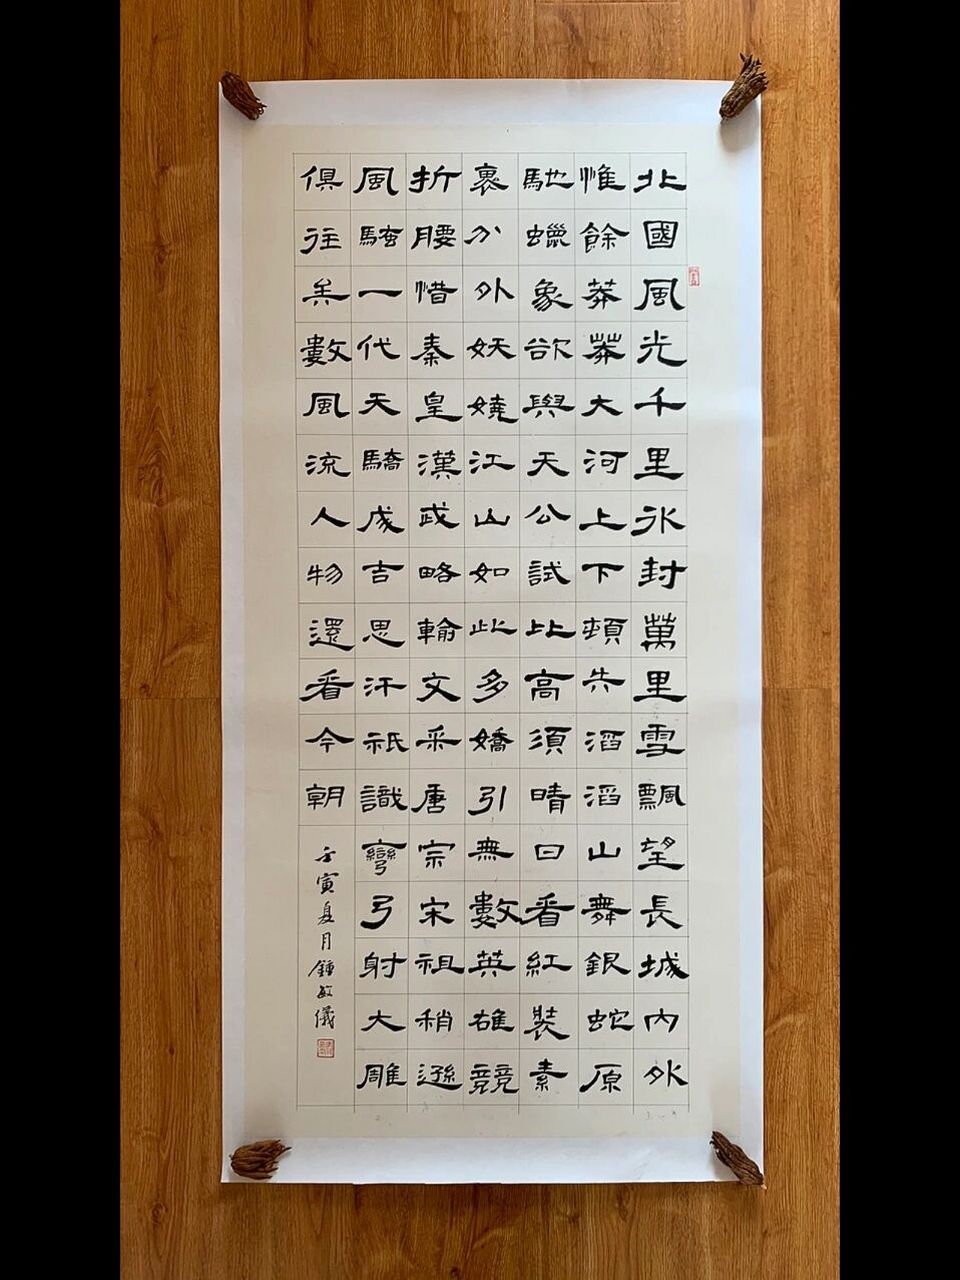 北國風光千里冰封萬里雪飄望長城內外
惟餘莽莽大河上下頓失滔滔山舞銀蛇原
馳蠟象欲與天公試比高須晴日看紅裝素
裹分外妖嬈江山如此多嬌引無數英雄競
折腰惜秦皇漢武略輸文采唐宗宋祖稍遜
風騷一代天驕成吉思汗祇識彎弓射大雕
俱往矣數風流人物還看今朝
壬寅夏月鍾敏儀